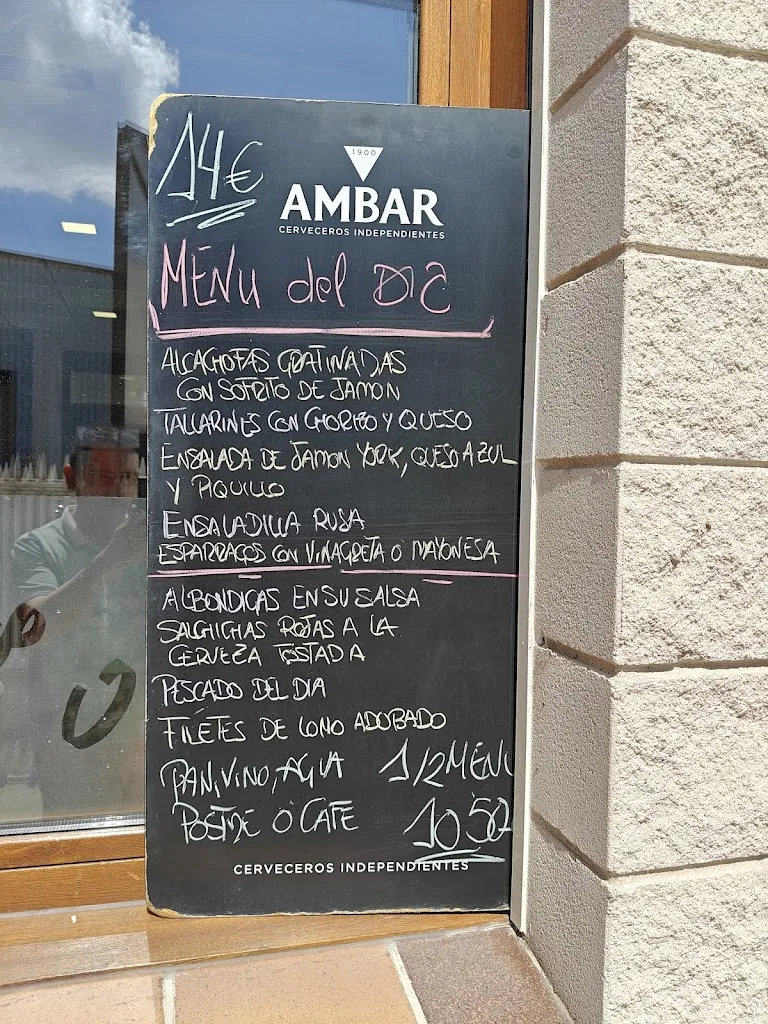 14€
1900
AMBAR
CERVECEROS INDEPENDIENTES
MENU del DIA
ALCACHOFAS GRATINADAS
CON SOFRITO DE JAMON
TALLARINES CON CHORIZO Y QUESO
ENSALADA DE JAMON YORK, QUESO AZUL
Y PIQUILLO
ENSALADILLA RUSA
ESPARRAGOS CON VINAGRETA O MAYONESA
ALBONDIGAS EN SU SALSA
SALCHICHAS ROJAS A LA
CERVEZA TOSTADA
PESCADO DEL DIA
FILETES DE LOMO ADOBADO
PAN, VINO, AGUA 1/2 MENU
POSTRE O CAFE 10'50
CERVECEROS INDEPENDIENTES